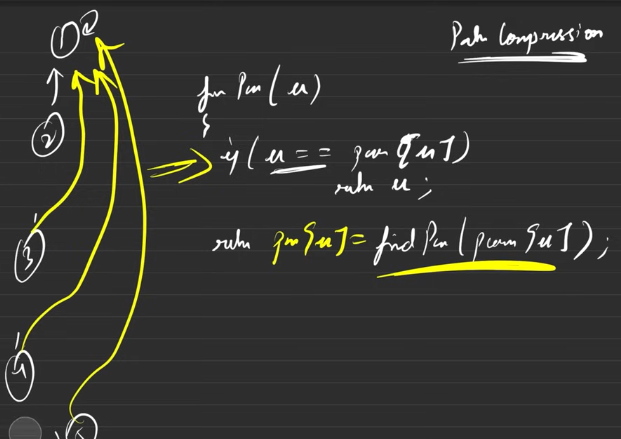 Path Compression
1
2
fun Par ( u )
{
if ( u == par [u] )
return u ;
3
return par[u] = find Par ( par[u] ) ;
4
5